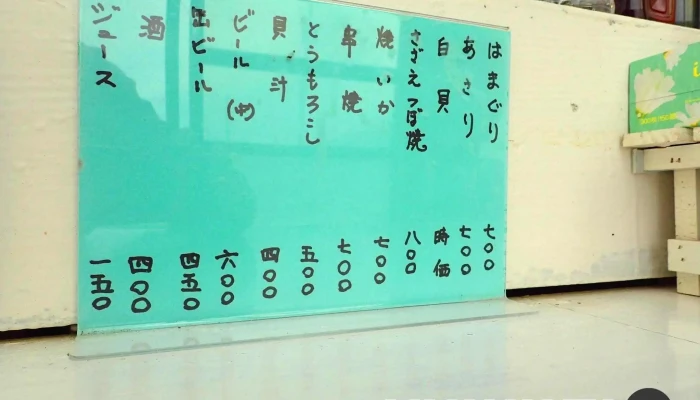 はまぐり 七〇〇
あさり 七〇〇
白貝 時価
さざえつぼ焼 八〇〇
焼いか 七〇〇
串焼 七〇〇
とうもろこし 五〇〇
貝汁 四〇〇
ビール(中) 六〇〇
缶ビール 四五〇
酒 四〇〇
ジュース 一五〇